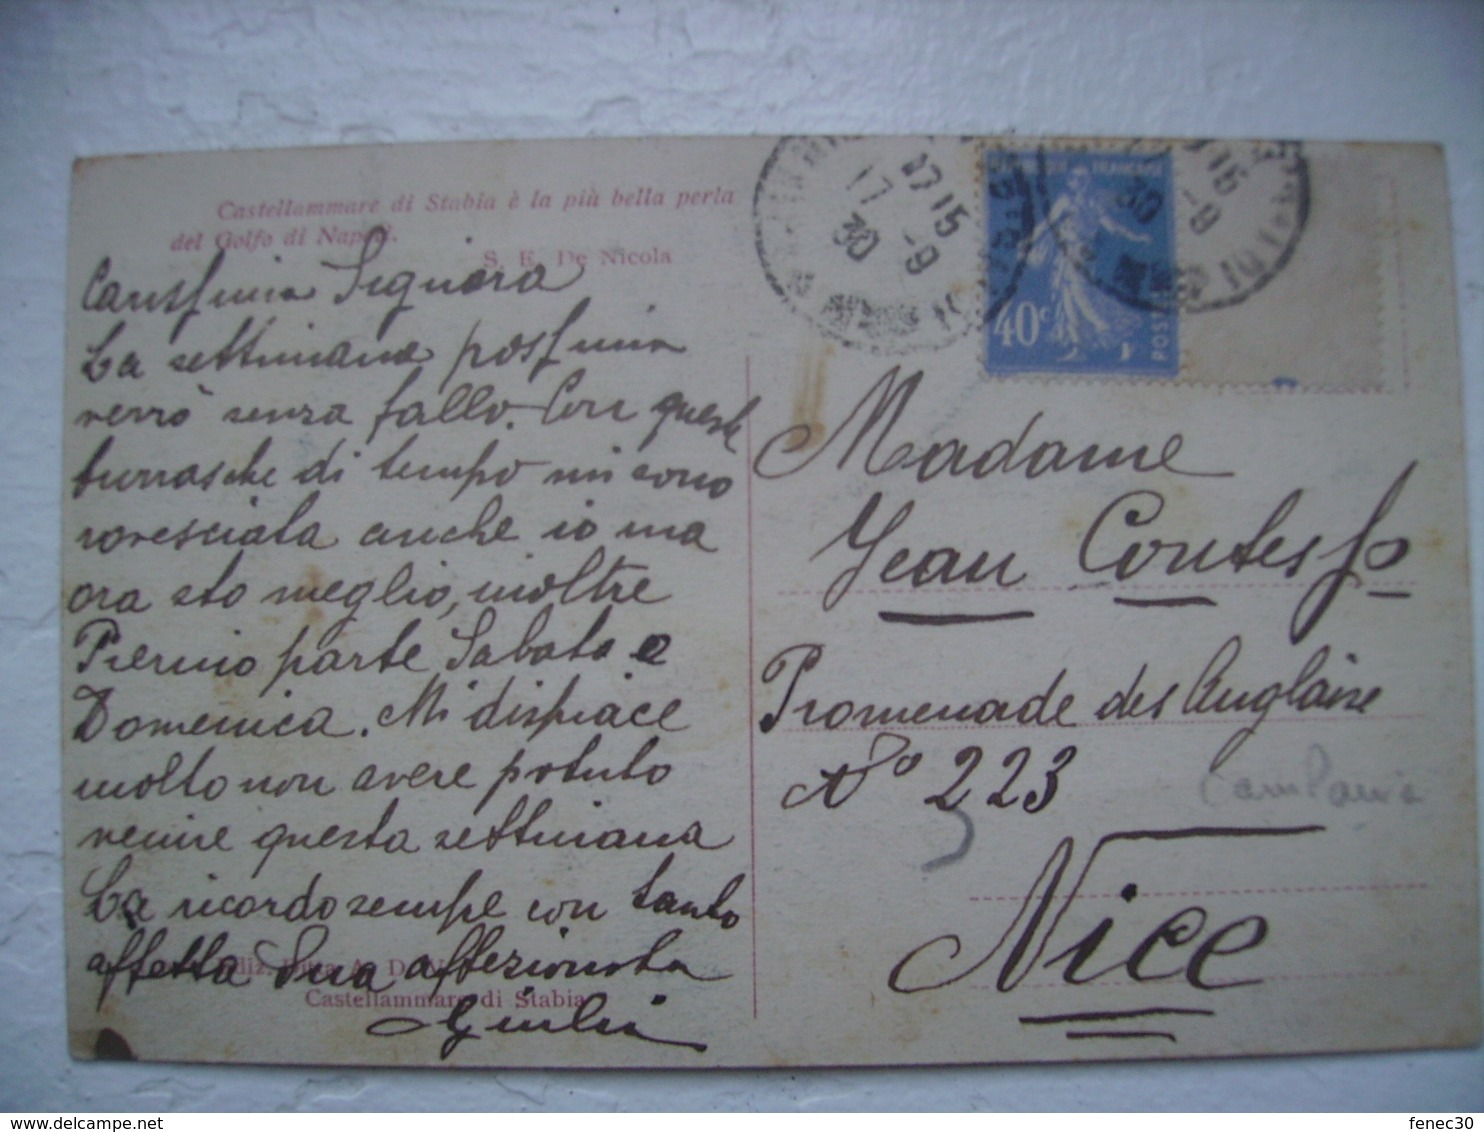 Castellammare di Stabia è la più bella perla
del Golfo di Napoli.
S. E. De Nicola
Carissima Signora
La settimana prossima
verrò senza fallo. Con queste
burrasche di tempo mi sono
rovesciata anche io ma
ora sto meglio, inoltre
Pierino parte Sabato o
Domenica. Mi dispiace
molto non avere potuto
venire questa settimana
La ricordo sempre con tanto
affetto Sua affezionata
Giulia
Ediz. Ditta A. D.
Castellammare di Stabia
17 15
17 -9
30
15
-9
30
FRANCAISE
40c
POST
Madame
Jean Contesso
Promenade des Anglaise
No 223
Nice
Campania
fenec30